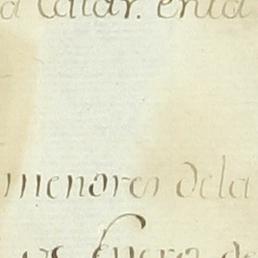 a Catar. enla
menores dela
Enero de